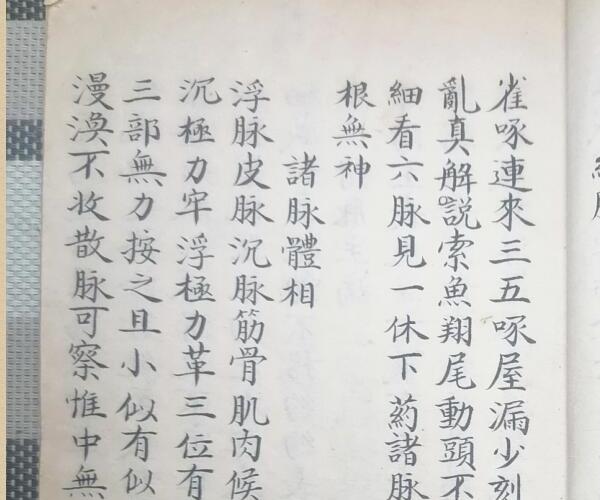 雀啄連來三五啄屋漏少刻
亂真解説索魚翔尾動頭不
細看六脉見一休下药諸脉
根無神
諸脉體相
浮脉皮脉沉脉筋骨肌肉候
沉極力牢浮極力革三位有
三部無力按之且小似有似
漫渙不收散脉可察惟中無